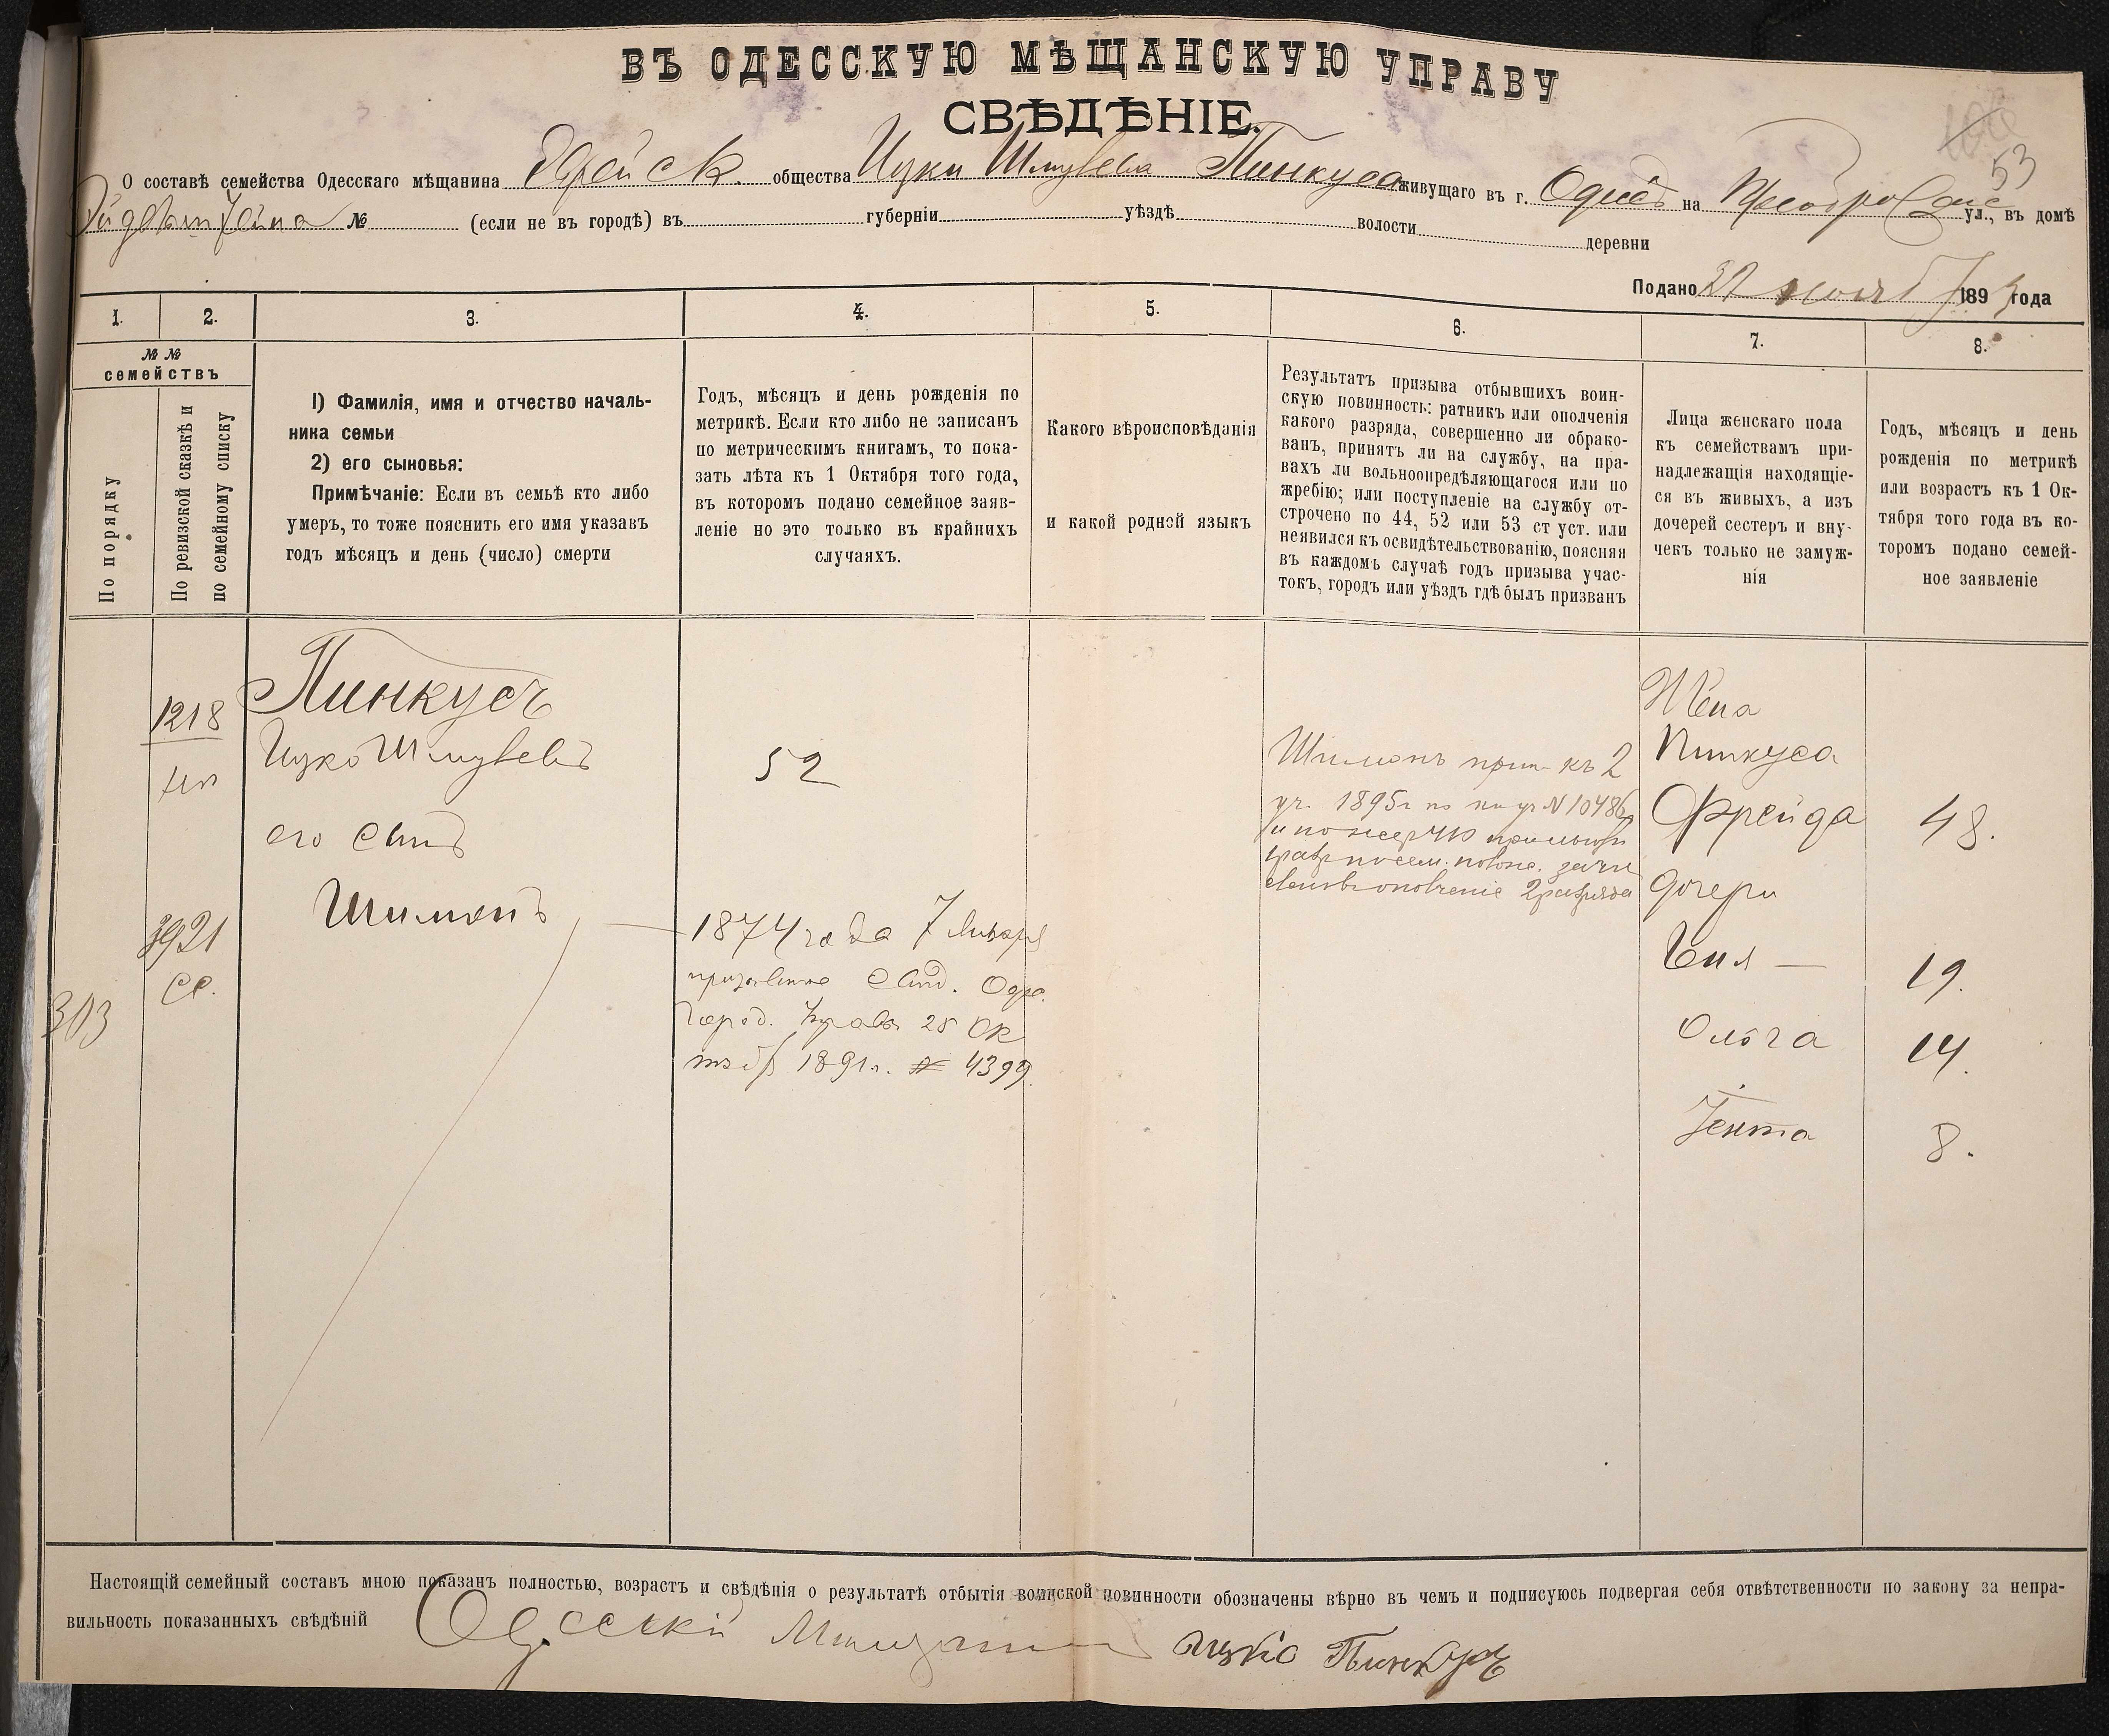 ВЪ ОДЕССКУЮ МѢЩАНСКУЮ УПРАВУ
СВѢДѢНІЕ.
53
О составѣ семейства Одесскаго мѣщанина Еврейск. общества Ицки Шмулева Пинкуса живущаго въ г. Одессѣ на Преображ ул., въ домѣ
№ (если не въ городѣ) въ губерніи уѣздѣ волости деревни
Подано ноября 189 года
1. 2. 3. 4. 5. 6. 7. 8.
№ №
семействъ
По порядку
По ревизской сказкѣ и
по семейному списку
1) Фамилія, имя и отчество началь-
ника семьи
2) его сыновья:
Примѣчаніе: Если въ семьѣ кто либо
умеръ, то тоже пояснить его имя указавъ
годъ мѣсяцъ и день (число) смерти
Годъ, мѣсяцъ и день рожденія по
метрикѣ. Если кто либо не записанъ
по метрическимъ книгамъ, то пока-
зать лѣта къ 1 Октября того года,
въ которомъ подано семейное заяв-
леніе но это только въ крайнихъ
случаяхъ.
Какого вѣроисповѣданія
и какой родной языкъ
Результатъ призыва отбывшихъ воин-
скую повинность: ратникъ или ополченія
какого разряда, совершенно ли обрако-
ванъ, принятъ ли на службу, на пра-
вахъ ли вольноопредѣляющагося или по
жребію; или поступленіе на службу от-
строчено по 44, 52 или 53 ст уст. или
неявился къ освидѣтельствованію, поясняя
въ каждомъ случаѣ годъ призыва учас-
токъ, городъ или уѣздъ гдѣ былъ призванъ
Лица женскаго пола
къ семействамъ при-
надлежащія находящіе-
ся въ живыхъ, а изъ
дочерей сестеръ и вну-
чекъ только не замуж-
нія
Годъ, мѣсяцъ и день
рожденія по метрикѣ
или возрастъ къ 1 Ок-
тября того года въ ко-
торомъ подано семей-
ное заявленіе
1218
3921
СС.
303
Пинкусъ
Ицко Шмулевъ
его сынъ
Шимонъ
52
1874 года 7 Января
призывное свид. Одес.
Город. Управы 25 Ок
тяб 1891 г. № 4399.
Шимонъ прип. къ 2
уч. 1895 г по № 10486
ополченіе 2 разряда
Жена
Пинкуса
Фрейда 48.
дочери
Геня — 19.
Ольга 14.
Гента 8.
Настоящій семейный составъ мною показанъ полностью, возрастъ и свѣдѣнія о результатѣ отбытія воинской повинности обозначены вѣрно въ чемъ и подписуюсь подвергая себя отвѣтственности по закону за непра-
вильность показанныхъ свѣдѣній Одесскій Мещанин Ицко Пинкусъ